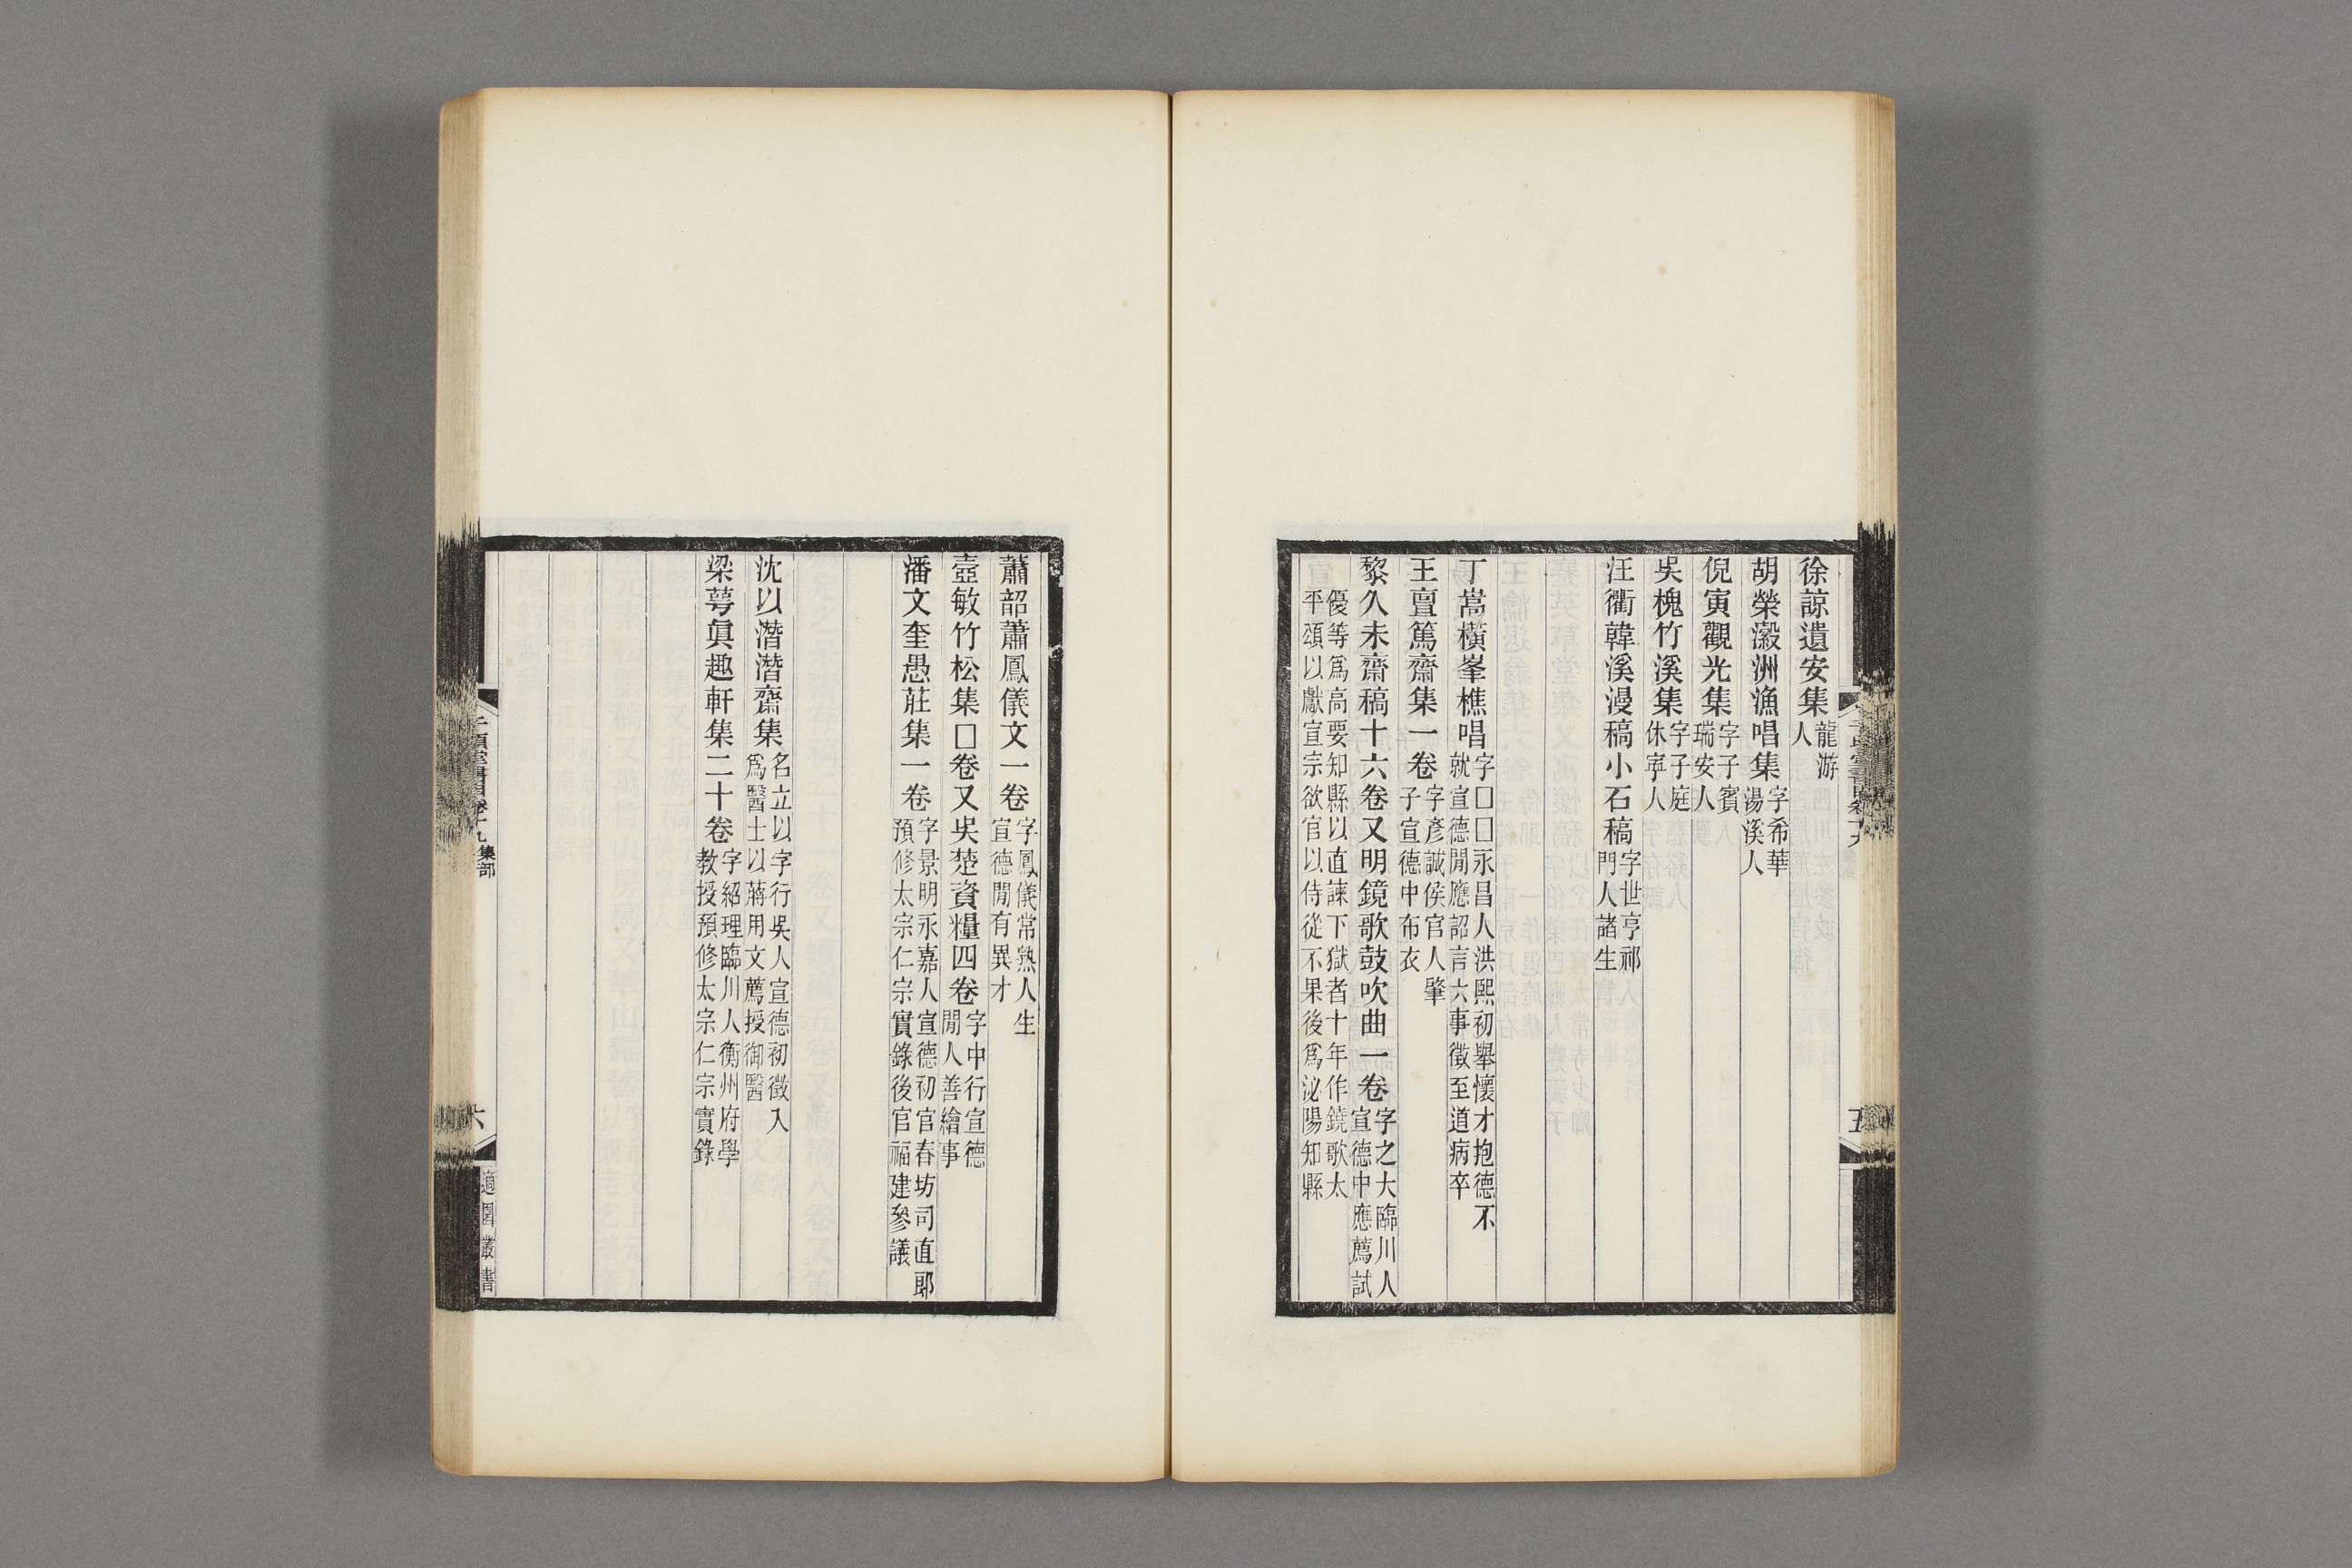 徐諒遺安集龍游人
胡榮瀫洲漁唱集字希華湯溪人
倪寅觀光集字子賓瑞安人
吳槐竹溪集字子庭休寧人
汪衢韓溪漫稿小石稿字世亨祁門人諸生
丁嵩橫峯樵唱字□□永昌人洪熙初舉懷才抱德不就宣德閒應詔言六事徵至道病卒
王亶篤齋集一卷字彥誠侯官人肇子宣德中布衣
黎久未齋稿十六卷又明鏡歌鼓吹曲一卷字之大臨川人宣德中應薦試
優等爲高要知縣以直諫下獄者十年作鐃歌太平頌以獻宣宗欲官以侍從不果後爲泌陽知縣
五
蕭韶蕭鳳儀文一卷字鳳儀常熟人生宣德閒有異才
壺敏竹松集□卷又吳楚資糧四卷字中行宣德閒人善繪事
潘文奎愚莊集一卷字景明永嘉人宣德初官春坊司直郞預修太宗仁宗實錄後官福建參議
沈以潛潛齋集名立以字行吳人宣德初徵入爲醫士以蔣用文薦授御醫
梁萼眞趣軒集二十卷字紹理臨川人衡州府學教授預修太宗仁宗實錄
千頃堂書目卷十九集部
六
適園叢書